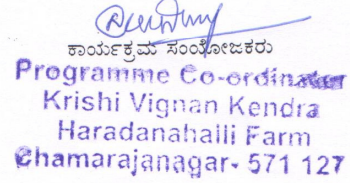 ಕಾರ್ಯಕ್ರಮ ಸಂಯೋಜಕರು
Programme Co-ordinator
Krishi Vignan Kendra
Haradanahalli Farm
Chamarajanagar- 571 127